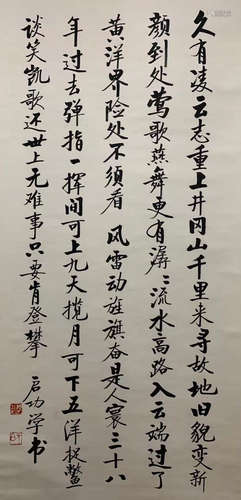 久有凌云志重上井冈山千里来寻故地旧貌变新
颜到处莺歌燕舞更有潺々流水高路入云端过了
黄洋界险处不须看 风雷动旌旗奋是人寰三十八
年过去弹指一挥间可上九天揽月可下五洋捉鳖
谈笑凯歌还世上无难事只要肯登攀 启功学书